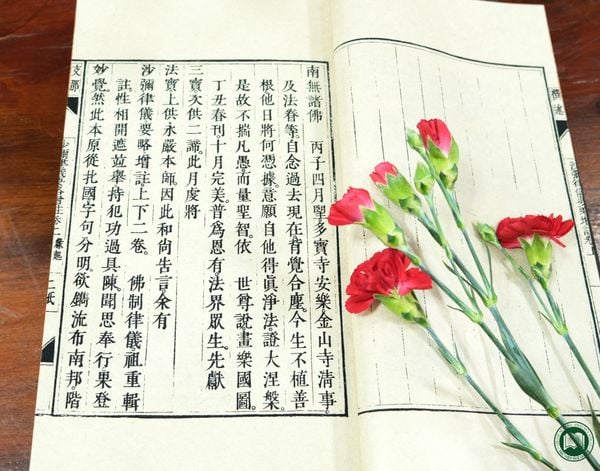 南無諸佛　丙子四月望多寶寺安樂金山寺清事
及法眷等自念過去現在背覺合塵今生不植善
根他日將何憑據意願自他得眞淨法證大涅槃
是故不揣凡愚而量聖智依　世尊說畫樂國圖
丁丑春刊十月完美普爲恩有法界眾生先獻
三寶次供二諦此月度將
法寶上供永嚴本師因此和尚告言余有
沙彌律儀要略增註上下二卷　佛制律儀祖重輯
註性相開遮並舉持犯功過具陳聞思奉行果登
妙覺然此本原從北國字句分明欲鐫流布南邦階
支那
二紙